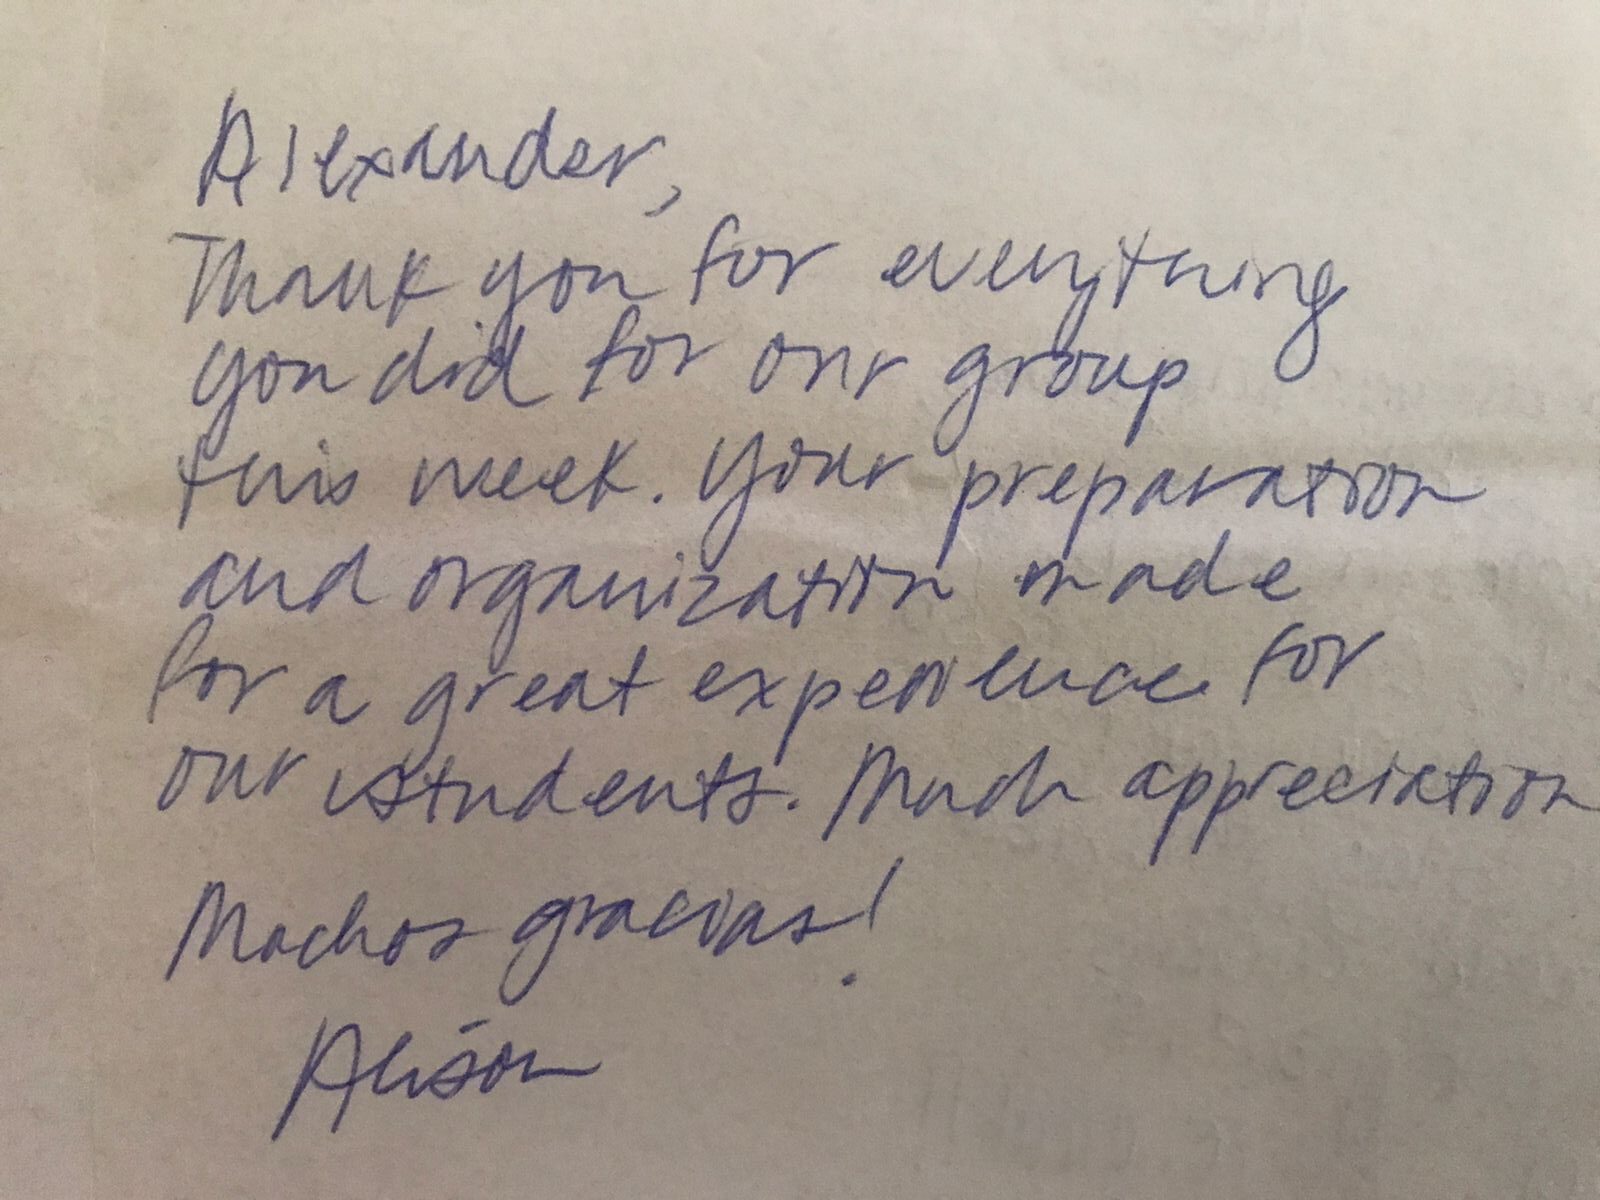 Alexander,
Thank you for everything
you did for our group
this week. Your preparation
and organization made
for a great experience for
our students. Much appreciation
Muchos gracias!
Alison